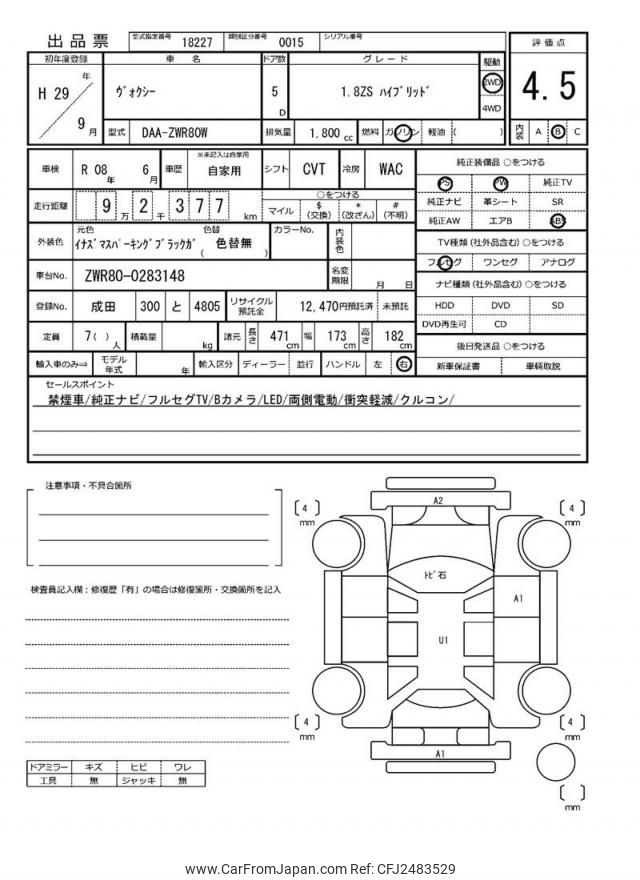 出品票 型式指定番号 18227 類別区分番号 0015 シリアル番号
評価点
4.5
内装 A B C
初年度登録 車名 ドア数 グレード 駆動
H 29 年 9 月
ヴォクシー 5 D 1.8ZS ハイブリッド 2WD 4WD
型式 DAA-ZWR80W 排気量 1,800 cc 燃料 ガソリン 軽油 ( )
車検 R 08 年 6 月 車歴 ※未記入は自家用 自家用 シフト CVT 冷房 WAC
走行距離 9 万 2 千 3 7 7 km
○をつける
マイル $(交換) *(改ざん) #(不明)
外装色 元色 イナズマスパーキングブラックガ 色替 ( 色替無 ) カラーNo. 内装色
車台No. ZWR80-0283148 名変期限 月 日
登録No. 成田 300 と 4805 リサイクル預託金 12,470円預託済 未預託
定員 7( ) 人 積載量 kg 諸元 長さ 471 cm 幅 173 cm 高さ 182 cm
輸入車のみ⇒ モデル年式 年 輸入区分 ディーラー 並行 ハンドル 左 右
純正装備品 ○をつける
PS PW 純正TV
純正ナビ 革シート SR
純正AW エアB ABS
TV種類 (社外品含む) ○をつける
フルセグ ワンセグ アナログ
ナビ種類 (社外品含む) ○をつける
HDD DVD SD
DVD再生可 CD
後日発送品 ○をつける
新車保証書 車輌取説
セールスポイント
禁煙車/純正ナビ/フルセグTV/Bカメラ/LED/両側電動/衝突軽減/クルコン/
注意事項・不具合箇所
検査員記入欄：修復歴「有」の場合は修復箇所・交換箇所を記入
ドアミラー キズ ヒビ ワレ
工具 無 ジャッキ 無
[ 4 ] mm
A2
[ 4 ] mm
トビ石
A1
U1
[ 4 ] mm
A1
[ 4 ] mm
[ ] mm
www.CarFromJapan.com Ref: CFJ2483529